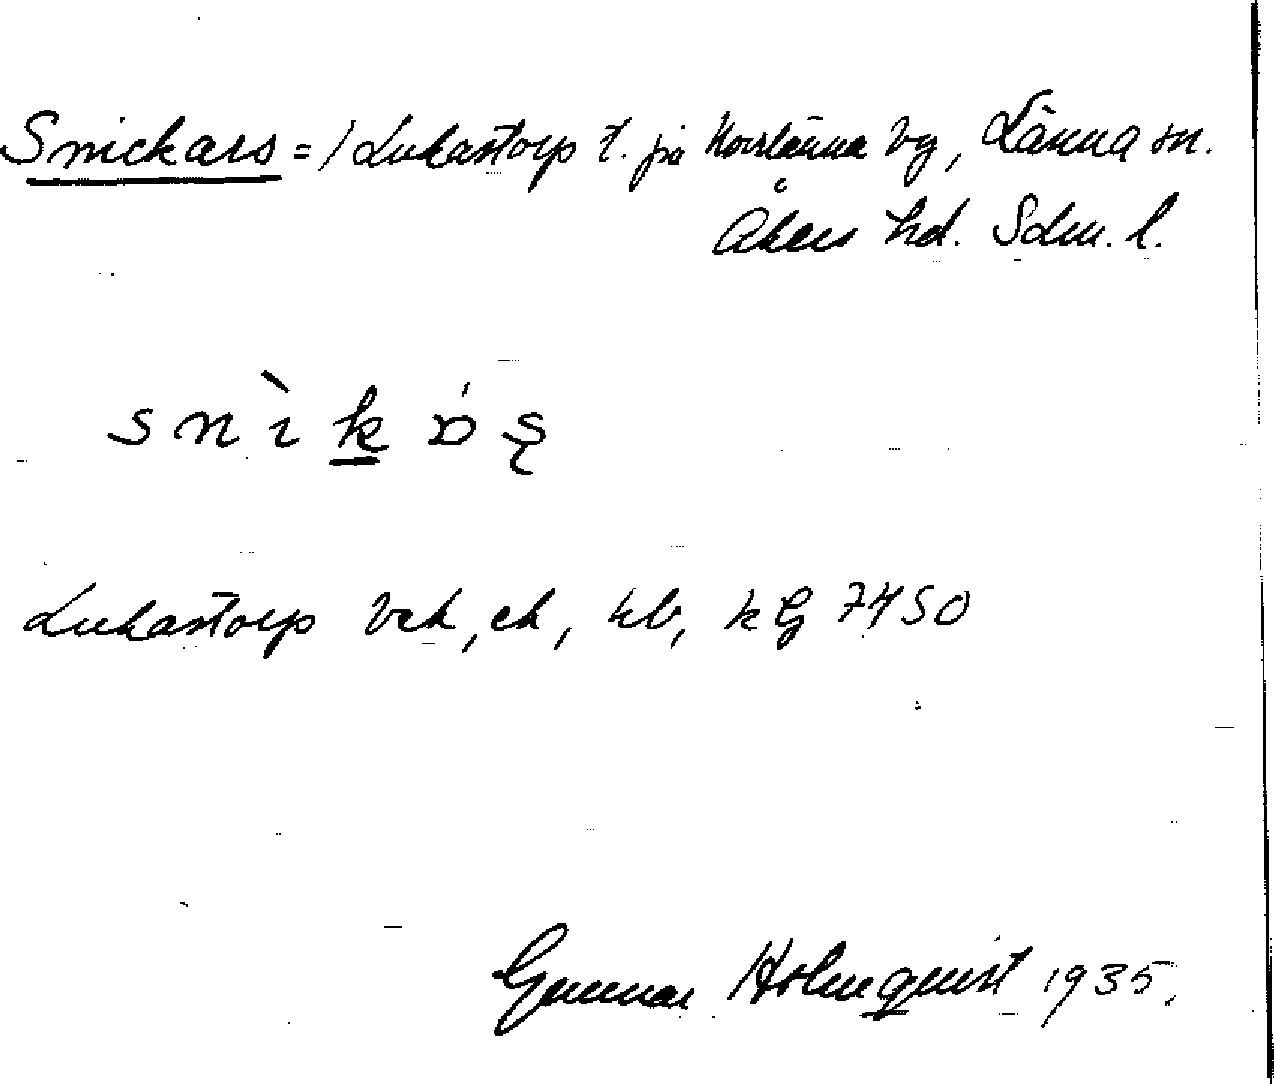 Snickars =/ Lukastorp t. på Norrlänna by, Länna sn.
Åkers hd. Sdm. l.
snìkɒ́ş
Lukastorp bek, ek, kb, kG 7450
Gunnar Holmquist 1935.